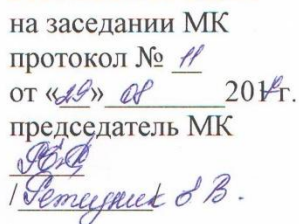 на заседании МК
протокол № 11
от «29» 08 201 г.
председатель МК